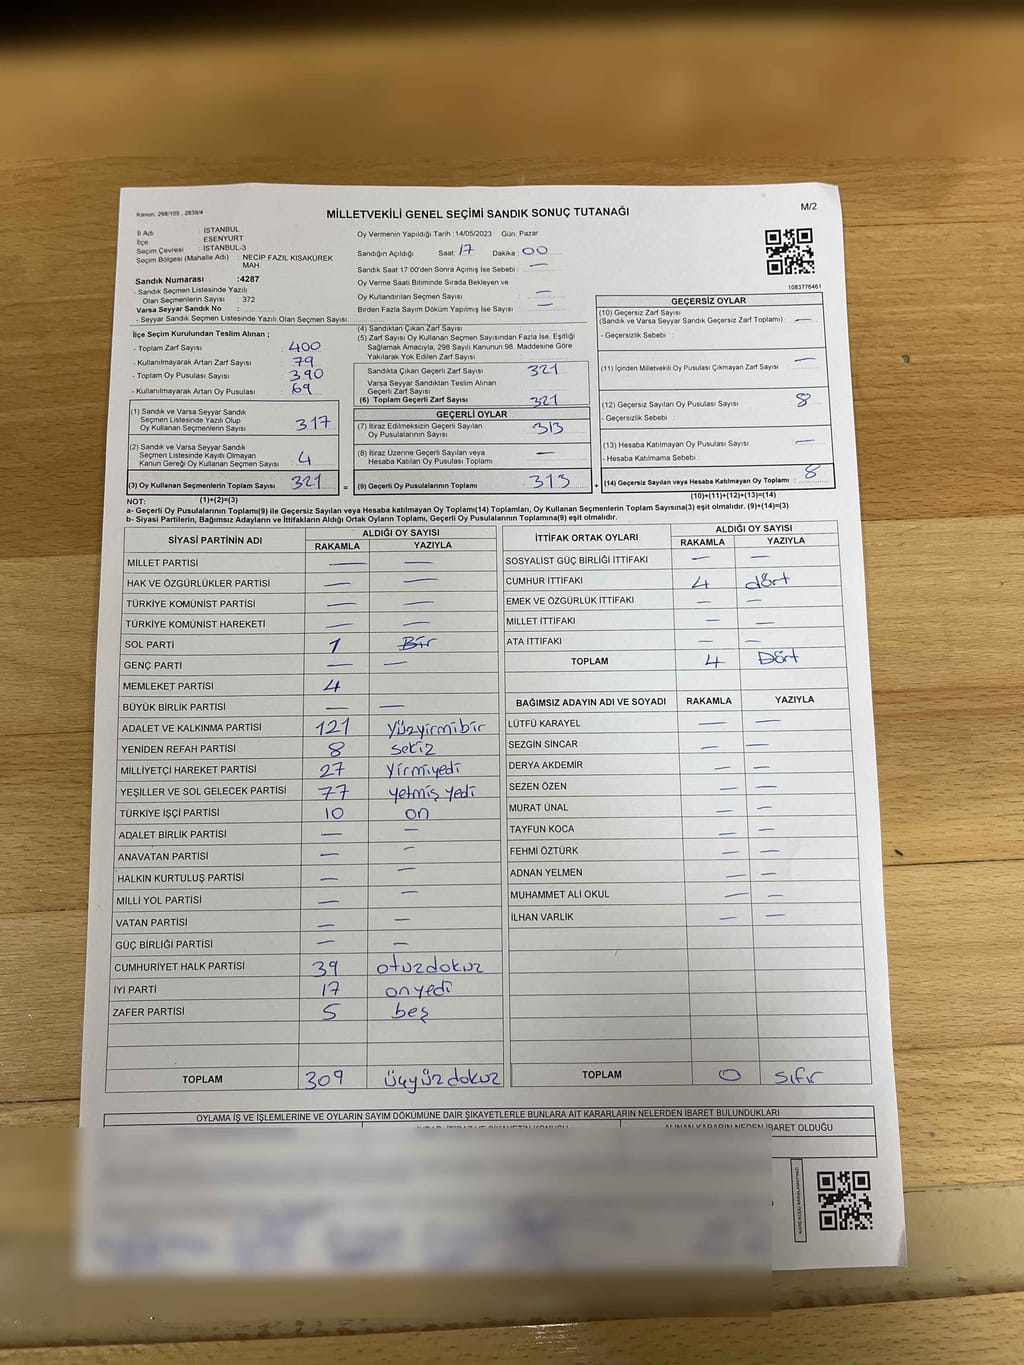 Kanun. 298/105 , 2839/4
MİLLETVEKİLİ GENEL SEÇİMİ SANDIK SONUÇ TUTANAĞI
M/2
İl Adı : İSTANBUL
İlçe : ESENYURT
Seçim Çevresi : İSTANBUL-3
Seçim Bölgesi (Mahalle Adı) : NECİP FAZIL KISAKÜREK MAH.
Sandık Numarası :4287
- Sandık Seçmen Listesinde Yazılı
Olan Seçmenlerin Sayısı : 372
Varsa Seyyar Sandık No :
- Seyyar Sandık Listesinde Yazılı Olan Seçmen Sayısı:
Oy Vermenin Yapıldığı Tarih :14/05/2023 Gün: Pazar
Sandığın Açıldığı Saat: 17 Dakika: 00
Sandık Saat 17.00'den Sonra Açılmış İse Sebebi : —
Oy Verme Saati Bitiminde Sırada Bekleyen ve
Oy Kullandırılan Seçmen Sayısı —
Birden Fazla Sayım Döküm Yapılmış İse Sayısı : —
1083776461
İlçe Seçim Kurulundan Teslim Alınan ;
- Toplam Zarf Sayısı : 400
- Kullanılmayarak Artan Zarf Sayısı : 79
- Toplam Oy Pusulası Sayısı : 390
- Kullanılmayarak Artan Oy Pusulası : 69
(1) Sandık ve Varsa Seyyar Sandık
Seçmen Listesinde Yazılı Olup
Oy Kullanan Seçmenlerin Sayısı : 317
(2) Sandık ve Varsa Seyyar Sandık
Seçmen Listesinde Kayıtlı Olmayan
Kanun Gereği Oy Kullanan Seçmen Sayısı : 4
(3) Oy Kullanan Seçmenlerin Toplam Sayısı : 321
(1)+(2)=(3)
(4) Sandıktan Çıkan Zarf Sayısı :
(5) Zarf Sayısı Oy Kullanan Seçmen Sayısından Fazla İse, Eşitliği
Sağlamak Amacıyla, 298 Sayılı Kanunun 98. Maddesine Göre
Yakılarak Yok Edilen Zarf Sayısı :
Sandıkta Çıkan Geçerli Zarf Sayısı : 321
Varsa Seyyar Sandıktan Teslim Alınan
Geçerli Zarf Sayısı :
(6) Toplam Geçerli Zarf Sayısı : 321
GEÇERLİ OYLAR
(7) İtiraz Edilmeksizin Geçerli Sayılan
Oy Pusulalarının Sayısı : 313
(8) İtiraz Üzerine Geçerli Sayılan veya
Hesaba Katılan Oy Pusulası Toplamı : —
= (9) Geçerli Oy Pusulalarının Toplamı : 313
GEÇERSİZ OYLAR
(10) Geçersiz Zarf Sayısı
(Sandık ve Varsa Seyyar Sandık Geçersiz Zarf Toplamı) : —
- Geçersizlik Sebebi :
(11) İçinden Milletvekili Oy Pusulası Çıkmayan Zarf Sayısı : —
(12) Geçersiz Sayılan Oy Pusulası Sayısı : 8
- Geçersizlik Sebebi :
(13) Hesaba Katılmayan Oy Pusulası Sayısı : —
- Hesaba Katılmama Sebebi :
+ (14) Geçersiz Sayılan veya Hesaba Katılmayan Oy Toplamı : 8
(10)+(11)+(12)+(13)=(14)
NOT:
a- Geçerli Oy Pusulalarının Toplamı(9) ile Geçersiz Sayılan veya Hesaba Katılmayan Oy Toplamı(14) Toplamları, Oy Kullanan Seçmenlerin Toplam Sayısına(3) eşit olmalıdır. (9)+(14)=(3)
b- Siyasi Partilerin, Bağımsız Adayların ve İttifakların Aldığı Ortak Oyların Toplamı, Geçerli Oy Pusulalarının Toplamına(9) eşit olmalıdır.
SİYASİ PARTİNİN ADI ALDIĞI OY SAYISI
RAKAMLA YAZIYLA
MİLLET PARTİSİ — —
HAK VE ÖZGÜRLÜKLER PARTİSİ — —
TÜRKİYE KOMÜNİST PARTİSİ — —
TÜRKİYE KOMÜNİST HAREKETİ — —
SOL PARTİ 1 Bir
GENÇ PARTİ — —
MEMLEKET PARTİSİ 4
BÜYÜK BİRLİK PARTİSİ — —
ADALET VE KALKINMA PARTİSİ 121 yüzyirmibir
YENİDEN REFAH PARTİSİ 8 sekiz
MİLLİYETÇİ HAREKET PARTİSİ 27 yirmiyedi
YEŞİLLER VE SOL GELECEK PARTİSİ 77 yetmiş yedi
TÜRKİYE İŞÇİ PARTİSİ 10 on
ADALET BİRLİK PARTİSİ — —
ANAVATAN PARTİSİ — —
HALKIN KURTULUŞ PARTİSİ — —
MİLLİ YOL PARTİSİ — —
VATAN PARTİSİ — —
GÜÇ BİRLİĞİ PARTİSİ — —
CUMHURİYET HALK PARTİSİ 39 otuzdokuz
İYİ PARTİ 17 onyedi
ZAFER PARTİSİ 5 beş
TOPLAM 309 üçyüzdokuz
İTTİFAK ORTAK OYLARI ALDIĞI OY SAYISI
RAKAMLA YAZIYLA
SOSYALİST GÜÇ BİRLİĞİ İTTİFAKI — —
CUMHUR İTTİFAKI 4 dört
EMEK VE ÖZGÜRLÜK İTTİFAKI — —
MİLLET İTTİFAKI — —
ATA İTTİFAKI — —
TOPLAM 4 Dört
BAĞIMSIZ ADAYIN ADI VE SOYADI RAKAMLA YAZIYLA
LÜTFÜ KARAYEL — —
SEZGİN SİNCAR — —
DERYA AKDEMİR — —
SEZEN ÖZEN — —
MURAT ÜNAL — —
TAYFUN KOCA — —
FEHMİ ÖZTÜRK — —
ADNAN YELMEN — —
MUHAMMET ALİ OKUL — —
İLHAN VARLIK — —
TOPLAM 0 sıfır
OYLAMA İŞ VE İŞLEMLERİNE VE OYLARIN SAYIM DÖKÜMÜNE DAİR ŞİKAYETLERLE BUNLARA AİT KARARLARIN NELERDEN İBARET BULUNDUKLARI
ALINAN KARARIN NEDEN İBARET OLDUĞU